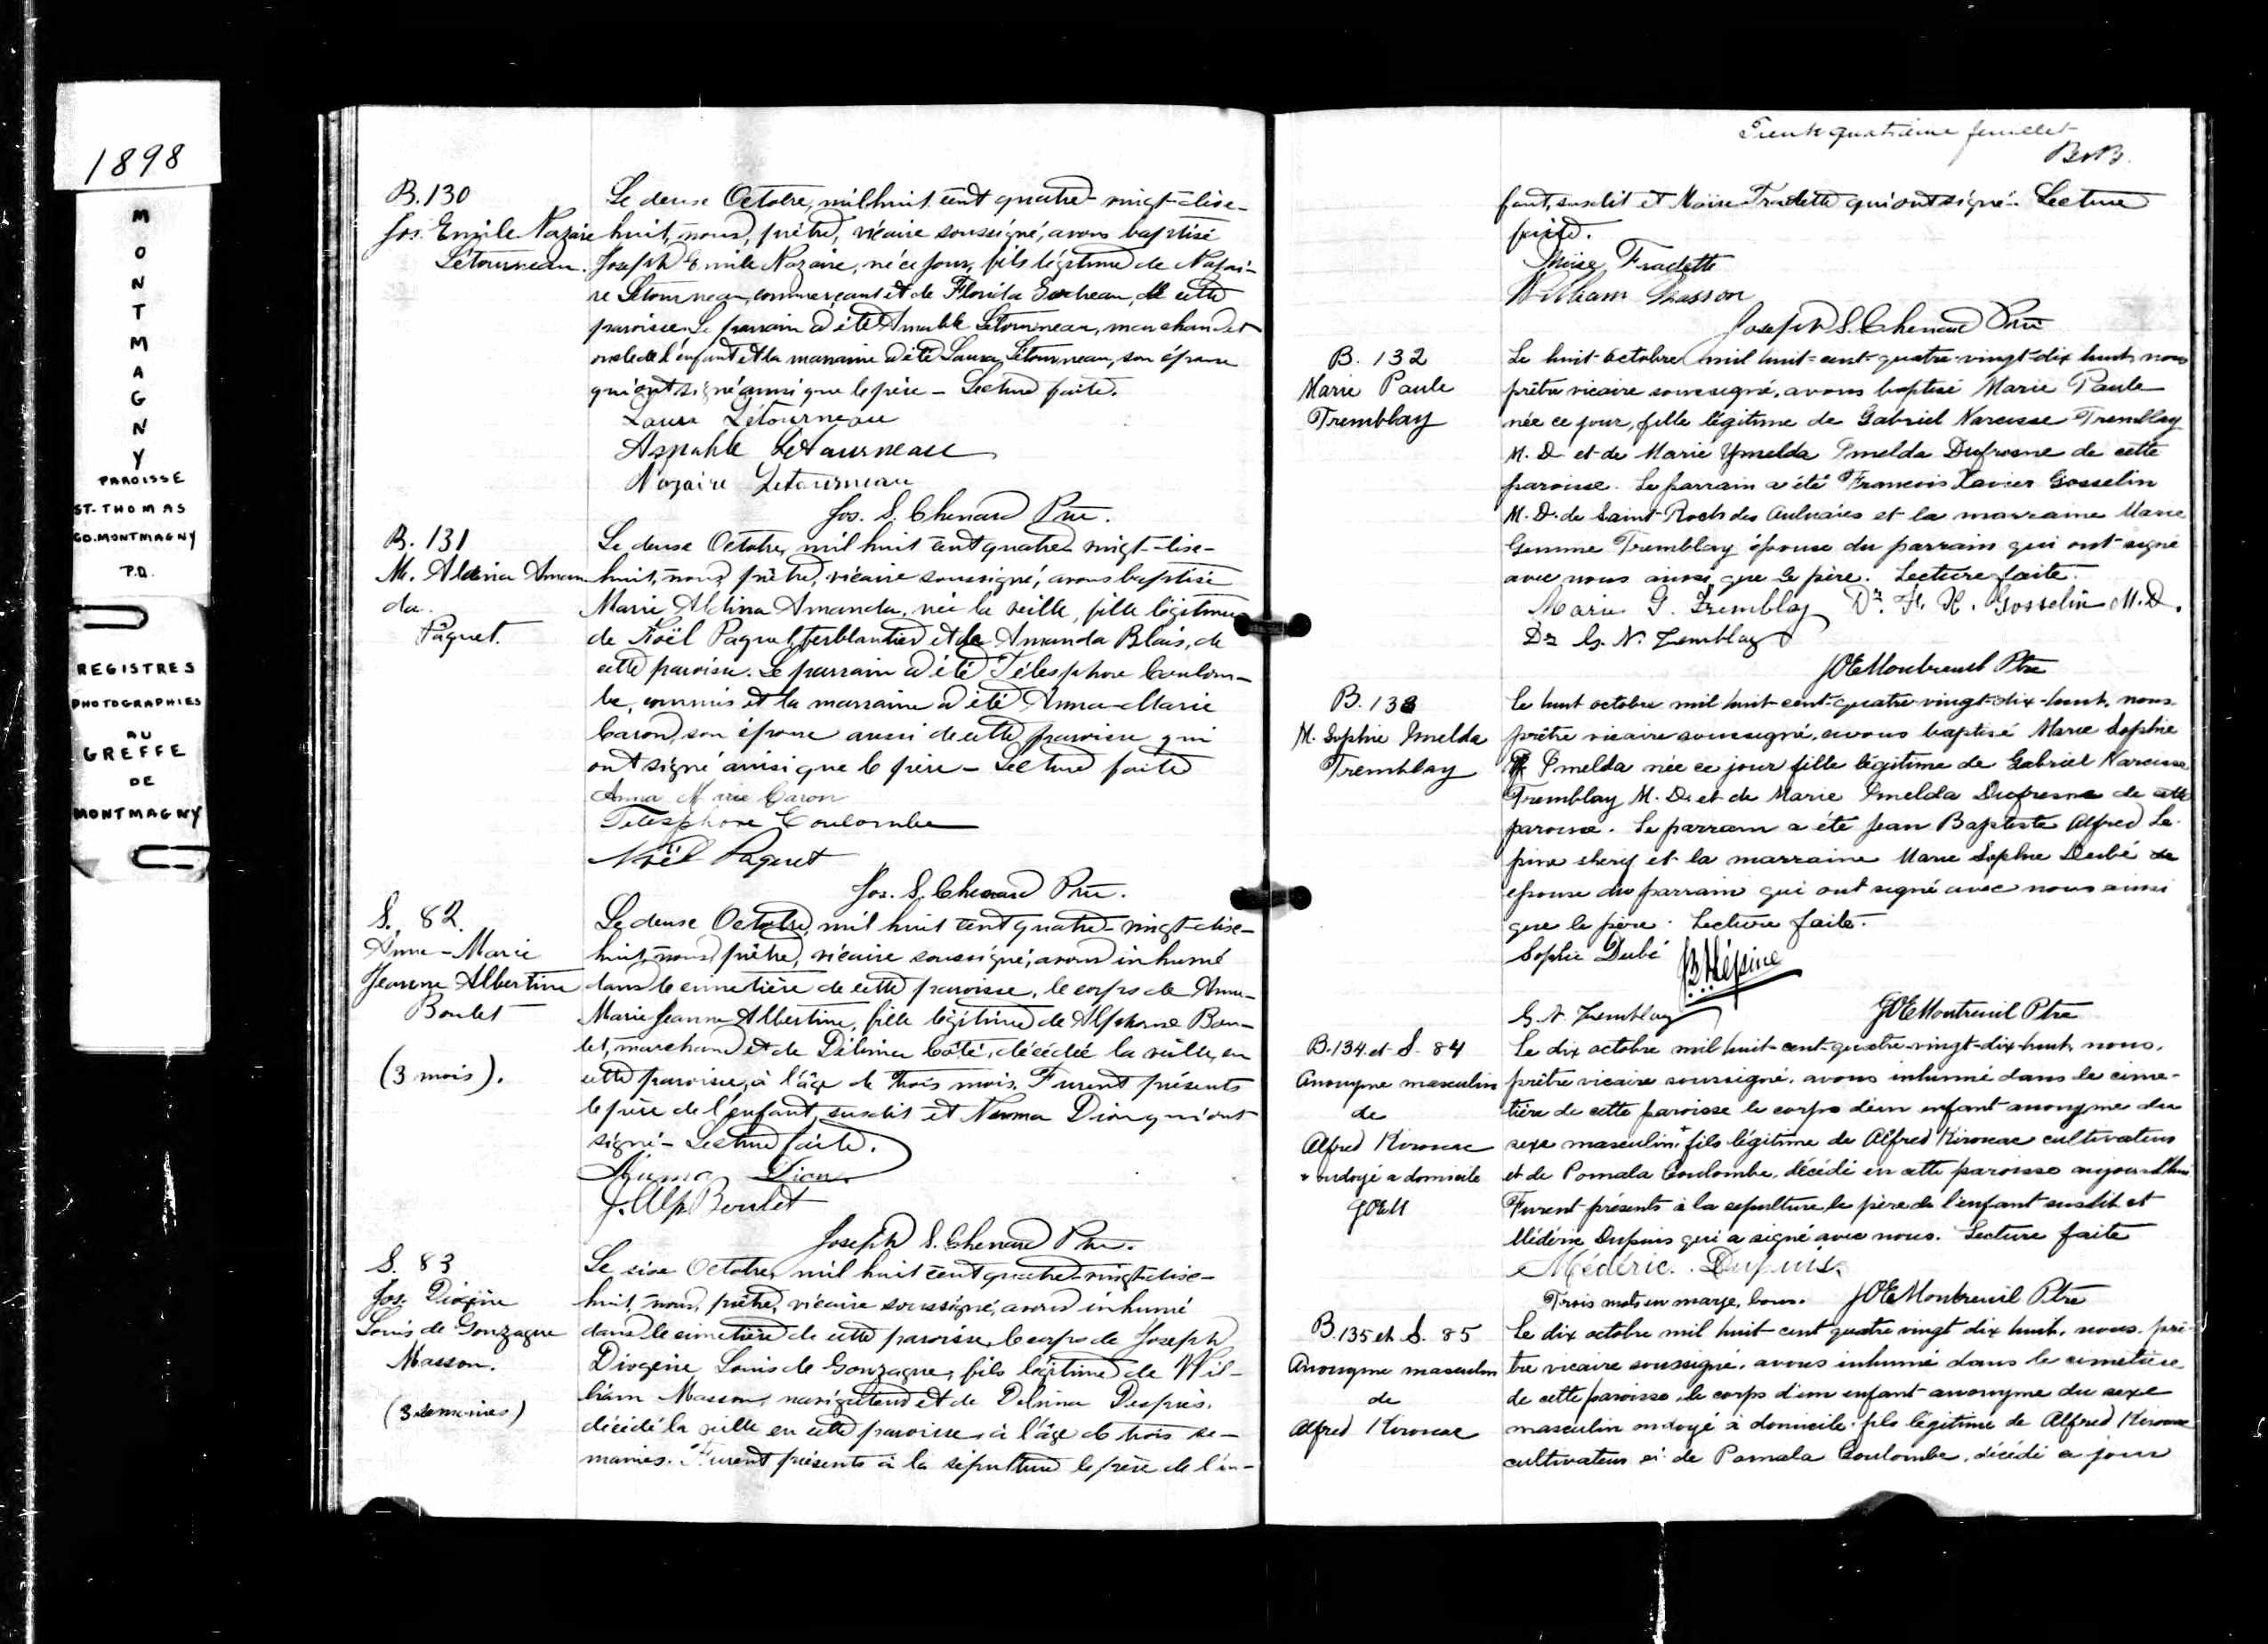 1898
MONTMAGNY
PAROISSE
ST-THOMAS
CO. MONTMAGNY
P.Q.
REGISTRES
PHOTOGRAPHIES
AU
GREFFE
DE
MONTMAGNY
B. 130
Jos. Emile Nazaire
Létourneau.
Le deuse Octobre, mil huit cent quatre-vingt-dise-
huit, nous, prêtre, vicaire soussigné, avons baptisé
Joseph Emile Nazaire, né ce jour, fils légitime de Nazai-
re Létourneau, commerçant et de Florida, de cette
paroisse. Le parrain a été Amable Létourneau, marchand et
oncle de l'enfant et la marraine a été Laura Létourneau, son épouse
qui ont signé ainsi que le père - Lecture faite.
Laura Létourneau
Amable Létourneau
Nazaire Letourneau
Jos. S. Chenard Ptre.
B. 131
M. Aldina Aman
da.
Paquet.
Le deuse Octobre, mil huit cent quatre-vingt-dise-
huit, nous, prêtre, vicaire soussigné, avons baptisé
Marie Aldina Amanda, née la veille, fille légitime
de Noël Paquet, ferblantier et de Amanda Blais, de
cette paroisse. Le parrain a été Télesphore Coulom-
be, commis et la marraine a été Anna-Marie
Caron, son épouse aussi de cette paroisse qui
ont signé ainsi que le père - Lecture faite
Anna Marie Caron
Télesphore Coulombe
Noël Paquet
Jos. S. Chenard Ptre.
S. 82.
Anne-Marie
Jeanne Albertine
Boulet
(3 mois).
Le deuse Octobre, mil huit cent quatre-vingt-dise-
huit, nous, prêtre, vicaire soussigné, avons inhumé
dans le cimetière de cette paroisse, le corps de Anne-
Marie Jeanne Albertine, fille légitime de Alphonse Bou-
let, marchand et de Délima Côté, décédée la veille, en
cette paroisse, à l'âge de trois mois. Furent présents
le père de l'enfant, susdit et Numa Dion qui ont
signé - Lecture faite.
Numa Dion
J. Alp Boulet
Joseph S. Chenard Ptre.
S. 83
Jos. Diogène
Louis de Gonzague
Masson.
(3 semaines)
Le sise Octobre, mil huit cent quatre-vingt-dise-
huit, nous, prêtre, vicaire soussigné, avons inhumé
dans le cimetière de cette paroisse, le corps de Joseph
Diogène Louis de Gonzague, fils légitime de Wil-
liam Masson, navigateur et de Delvina Després,
décédé la veille en cette paroisse à l'âge de trois se-
maines. Furent présents à la sépulture le père de l'en-
Trente quatrième feuillet
fant, susdit et Moïse Fradette qui ont signé. Lecture
faite.
Moïse Fradette
William Masson
Joseph S. Chenard Ptre
B. 132
Marie Paule
Tremblay
Le huit octobre mil huit-cent-quatre-vingt-dix huit, nous
prêtre vicaire soussigné, avons baptisé Marie Paule
née ce jour, fille légitime de Gabriel Narcisse Tremblay
M. D. et de Marie Ymelda Imelda Dufresne de cette
paroisse. Le parrain a été Francois Xavier Gosselin
M. D. de Saint-Roch des Aulnaies et la marraine Marie
Gemme Tremblay épouse du parrain qui ont signé
avec nous ainsi que le père. Lecture faite.
Marie G. Tremblay Dr. F. X. Gosselin M.D.
Dr G. N. Tremblay
JOEMontreuil Ptre
B. 133
M. Sophie Imelda
Tremblay
Le huit octobre mil huit-cent-quatre vingt-dix-huit, nous
prêtre vicaire soussigné, avons baptisé Marie Sophie
Imelda née ce jour fille légitime de Gabriel Narcisse
Tremblay M. D. et de Marie Imelda Dufresne de cette
paroisse. Le parrain a été Jean Baptiste Alfred Lé-
pine shérif et la marraine Marie Sophie Dubé
épouse du parrain qui ont signé avec nous ainsi
que le père. Lecture faite.
Sophie Dubé
Lépine
G. N. Tremblay
JOEMontreuil Ptre
B. 134 et S. 84
Anonyme masculin
de
Alfred Kirouac
+ ondoyé a domicile
JOEM
Le dix octobre mil huit-cent-quatre-vingt-dix-huit, nous,
prêtre vicaire soussigné, avons inhumé dans le cime-
tière de cette paroisse le corps d'un enfant anonyme du
sexe masculin+ fils légitime de Alfred Kirouac cultivateur
et de Pomala Coulombe, décédé en cette paroisse aujourd'hui
Furent présents à la sépulture le père de l'enfant susdit et
Médéric Dupuis qui a signé avec nous. Lecture faite
Médéric Dupuis.
Trois mots en marge, bons. JOEMontreuil Ptre
B. 135 et S. 85
Anonyme masculin
de
Alfred Kirouac
Le dix octobre mil huit cent quatre vingt dix huit, nous prê-
tre vicaire soussigné, avons inhumé dans le cimetière
de cette paroisse, le corps d'un enfant anonyme du sexe
masculin ondoyé à domicile, fils légitime de Alfred Kirouac
cultivateur et de Pomala Coulombe, décédé ce jour